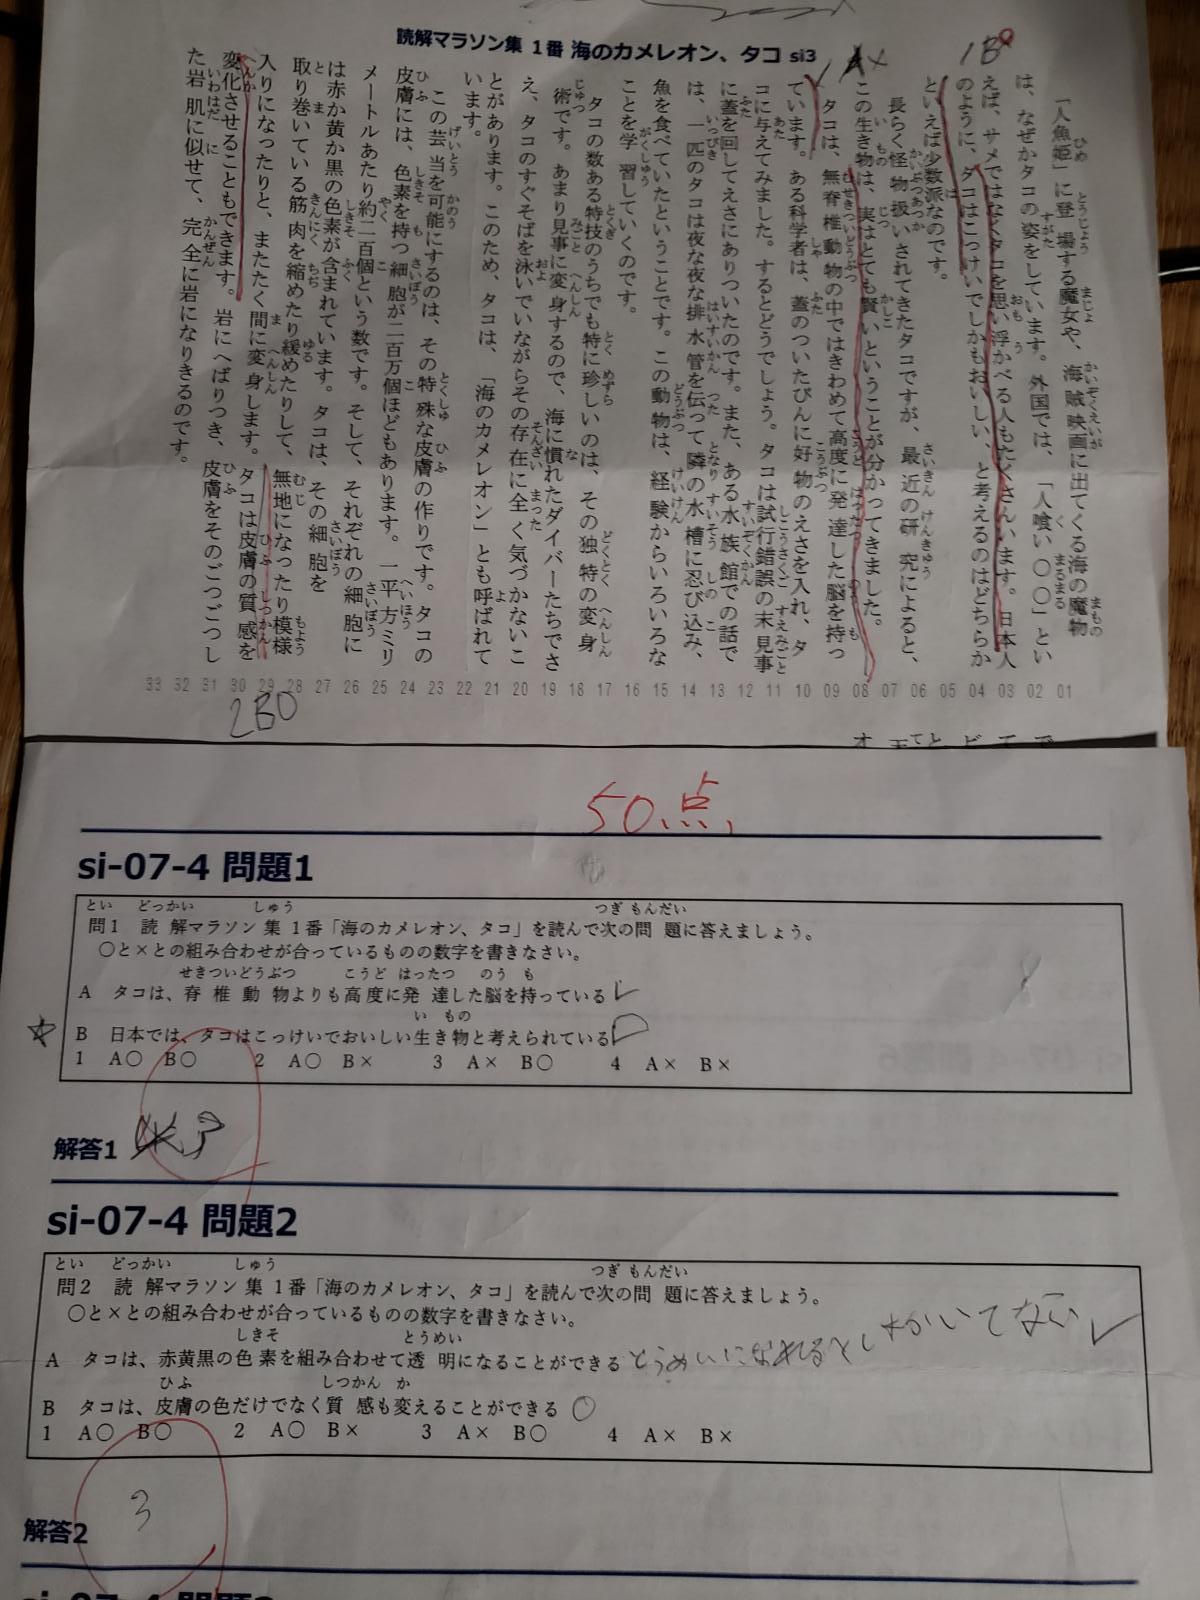 読解マラソン集 1番 海のカメレオン、タコ si3
1B
1A×
「人魚姫」に登場する魔女や、海賊映画に出てくる海の魔物
は、なぜかタコの姿をしています。外国では、「人喰い〇〇」とい
えば、サメではなくタコを思い浮かべる人もたくさんいます。日本人
のように、タコはこっけいでしかもおいしい、と考えるのはどちらか
といえば少数派なのです。
長らく怪物扱いされてきたタコですが、最近の研究によると、
この生き物は、実はとても賢いということが分かってきました。
タコは、無脊椎動物の中ではきわめて高度に発達した脳を持っ
ています。ある科学者は、蓋のついたびんに好物のえさを入れ、タ
コに与えてみました。するとどうでしょう。タコは試行錯誤の末見事
に蓋を回してえさにありついたのです。また、ある水族館での話で
は、一匹のタコは夜な夜な排水管を伝って隣の水槽に忍び込み、
魚を食べていたということです。この動物は、経験からいろいろな
ことを学習していくのです。
タコの数ある特技のうちでも特に珍しいのは、その独特の変身
術です。あまり見事に変身するので、海に慣れたダイバーたちでさ
え、タコのすぐそばを泳いでいながらその存在に全く気づかないこ
とがあります。このため、タコは、「海のカメレオン」とも呼ばれて
います。
この芸当を可能にするのは、その特殊な皮膚の作りです。タコの
皮膚には、色素を持つ細胞が二百万個ほどもあります。一平方ミリ
メートルあたり約二百個という数です。そして、それぞれの細胞に
は赤か黄か黒の色素が含まれています。タコは、その細胞を
取り巻いている筋肉を縮めたり緩めたりして、無地になったり模様
入りになったりと、またたく間に変身します。タコは皮膚の質感を
変化させることもできます。岩にへばりつき、皮膚をそのごつごつし
た岩肌に似せて、完全に岩になりきるのです。
33 32 31 30 29 28 27 26 25 24 23 22 21 20 19 18 17 16 15 14 13 12 11 10 09 08 07 06 05 04 03 02 01
2B〇
50点
si-07-4 問題1
問1 読解マラソン集 1番「海のカメレオン、タコ」を読んで次の問題に答えましょう。
〇と×との組み合わせが合っているものの数字を書きなさい。
A タコは、脊椎動物よりも高度に発達した脳を持っている
B 日本では、タコはこっけいでおいしい生き物と考えられている
1 A〇 B〇 2 A〇 B× 3 A× B〇 4 A× B×
解答1 3
si-07-4 問題2
問2 読解マラソン集 1番「海のカメレオン、タコ」を読んで次の問題に答えましょう。
〇と×との組み合わせが合っているものの数字を書きなさい。
A タコは、赤黄黒の色素を組み合わせて透明になることができる とうめいになれるとしかかいてない
B タコは、皮膚の色だけでなく質感も変えることができる 〇
1 A〇 B〇 2 A〇 B× 3 A× B〇 4 A× B×
解答2 3